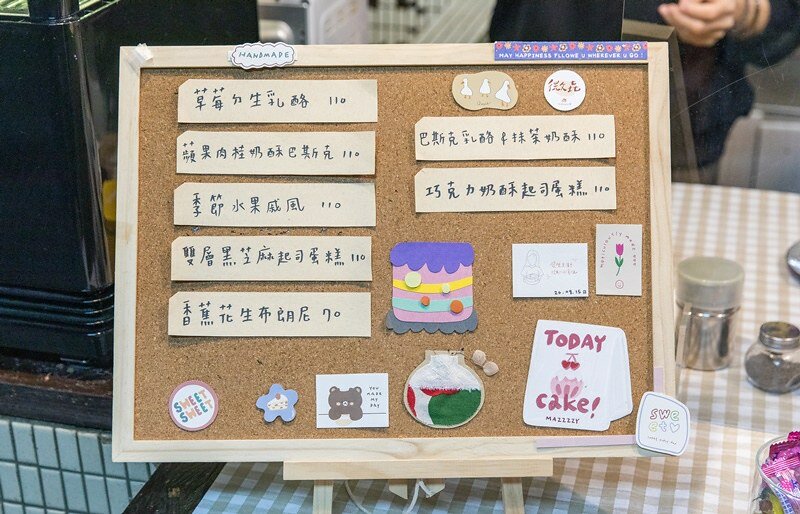 HANDMADE
MAY HAPPINESS FLLOWE U WHEREVER U GO!
草莓ㄉ生乳酪 110
蘋果肉桂奶酥巴斯克 110
季節水果戚風 110
雙層黑芝麻起司蛋糕 110
香蕉花生布朗尼 70
巴斯克乳酪&抹茶奶酥 110
巧克力奶酥起司蛋糕 110
SWEET
SWEET
YOU
MADE MY
DAY
TODAY
cake!
MAZZZZY
swe
et